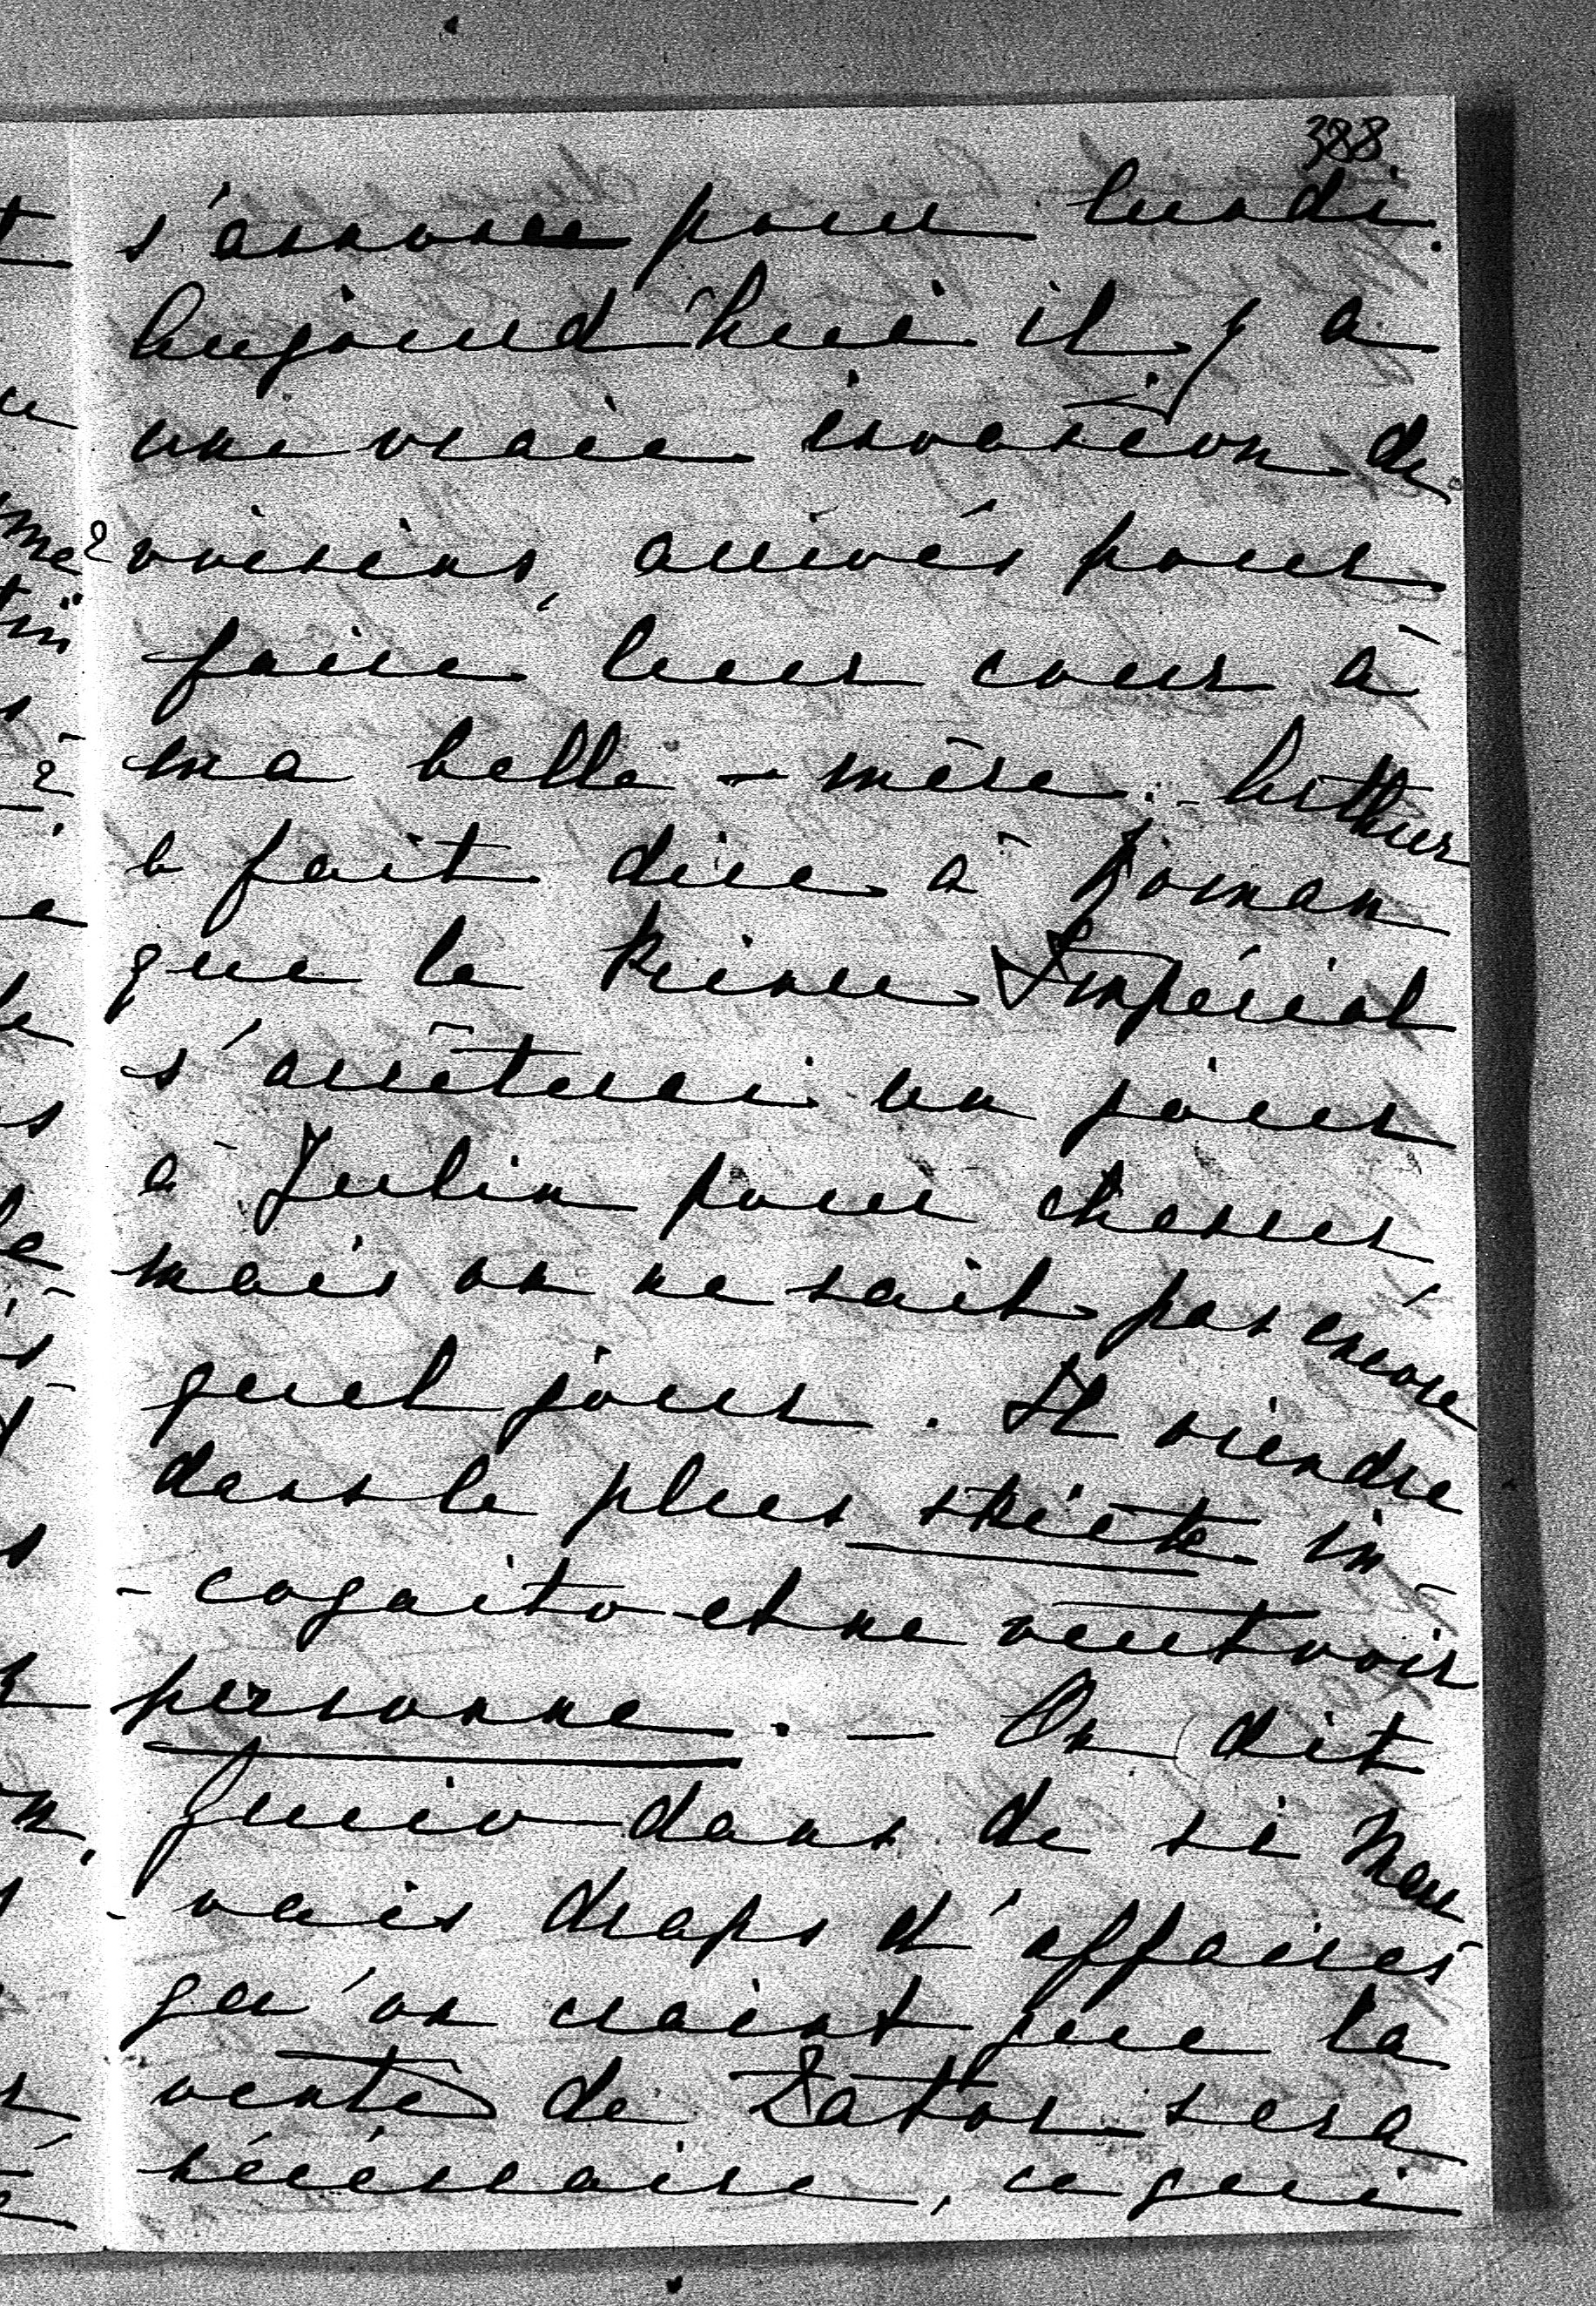 388.
s'annonce pour lundi.
Aujourd'hui il y a
une vraie invasion de
voisins, arrivés pour
faire leur cour à
ma belle-mère. - Arthur
a fait dire à Roman
que le Prince Impérial
s'arrêterai un jour
à Julin pour chasser,
mais on ne sait pas encore
quel jour. Il viendra
dans le plus stricte in
-cognito et ne veut voir
personne. - On dit
Guccio dans de si mau
-vais draps d'affaires
qu'on craint que la
vente de Zator sera
nécéssaire, ce qui